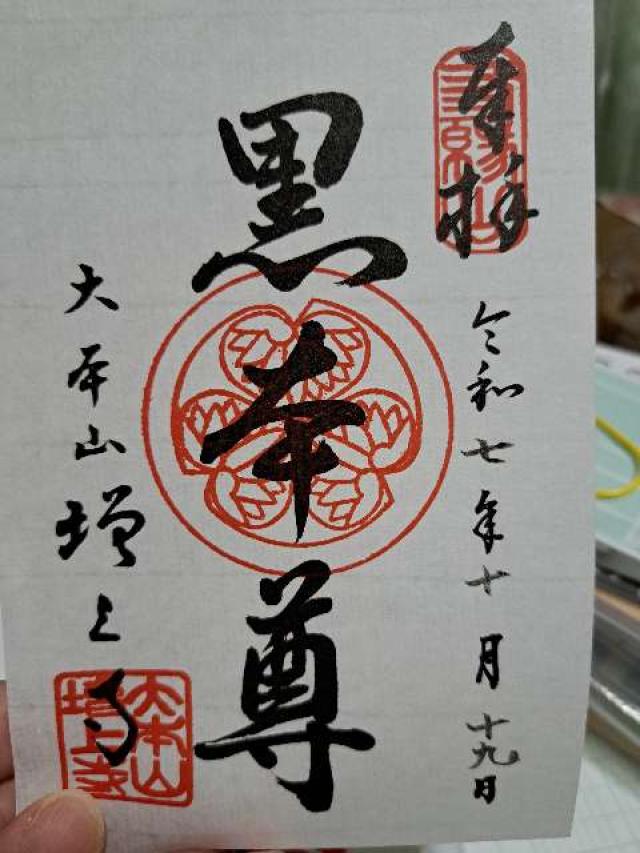 奉拝
令和七年十月十九日
黒本尊
大本山増上寺
三縁山
大本山
増上寺